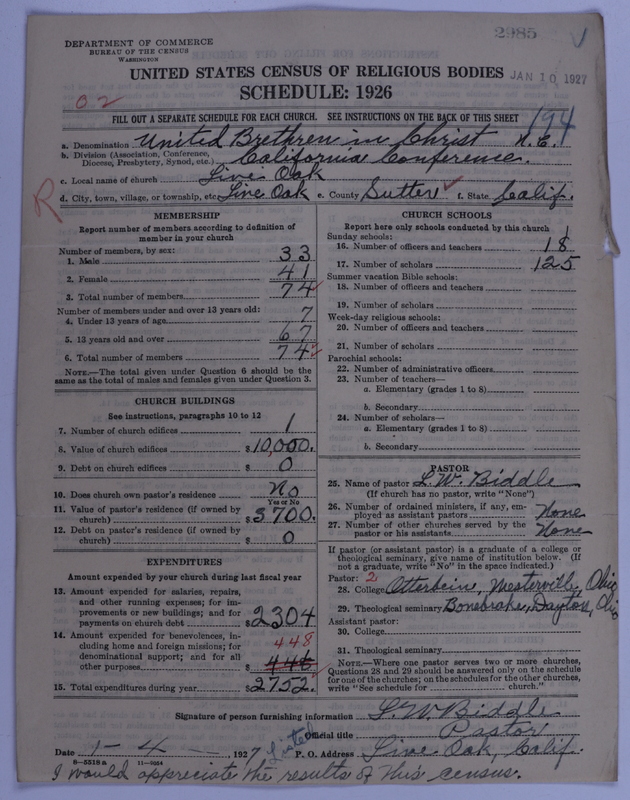 2985
DEPARTMENT OF COMMERCE
BUREAU OF THE CENSUS
WASHINGTON
UNITED STATES CENSUS OF RELIGIOUS BODIES
JAN 10 1927
SCHEDULE: 1926
02
FILL OUT A SEPARATE SCHEDULE FOR EACH CHURCH. SEE INSTRUCTIONS ON THE BACK OF THIS SHEET
194
a. Denomination United Brethren in Christ N. C.
b. Division (Association, Conference, Diocese, Presbytery, Synod, etc.) California Conference.
c. Local name of church Live Oak
R
d. City, town, village, or township, etc. Live Oak e. County Sutter f. State Calif.
MEMBERSHIP
Report number of members according to definition of
member in your church
Number of members, by sex:
1. Male 33
2. Female 41
3. Total number of members 74
Number of members under and over 13 years old:
4. Under 13 years of age 7
5. 13 years old and over 67
6. Total number of members 74
NOTE.—The total given under Question 6 should be
same as the total of males and females given under Question 3.
CHURCH BUILDINGS
See instructions, paragraphs 10 to 12
7. Number of church edifices 1
8. Value of church edifices $10,000.
9. Debt on church edifices $ 0
10. Does church own pastor's residence No
Yes or No
11. Value of pastor's residence (if owned by
church) $3700.
12. Debt on pastor's residence (if owned by
church) $ 0
EXPENDITURES
Amount expended by your church during last fiscal year
13. Amount expended for salaries, repairs,
and other running expenses; for im-
provements or new buildings; and for
payments on church debt $2304
14. Amount expended for benevolences, in-
cluding home and foreign missions; for
denominational support; and for all
other purposes $ 446
448
15. Total expenditures during year $2752.
CHURCH SCHOOLS
Report here only schools conducted by this church
Sunday schools:
16. Number of officers and teachers 18
17. Number of scholars 125
Summer vacation Bible schools:
18. Number of officers and teachers
19. Number of scholars
Week-day religious schools:
20. Number of officers and teachers
21. Number of scholars
Parochial schools:
22. Number of administrative officers
23. Number of teachers—
a. Elementary (grades 1 to 8)
b. Secondary
24. Number of scholars—
a. Elementary (grades 1 to 8)
b. Secondary
PASTOR
25. Name of pastor L. W. Biddle
(If church has no pastor, write "None")
26. Number of ordained ministers, if any, em-
ployed as assistant pastors None
27. Number of other churches served by the
pastor or his assistants None
If pastor (or assistant pastor) is a graduate of a college or
theological seminary, give name of institution below. (If
not a graduate, write "No" in the space indicated.)
Pastor: 2
28. College Otterbein, Westerville, Ohio
29. Theological seminary Bonebrake, Dayton, Ohio
Assistant pastor:
30. College
31. Theological seminary
NOTE.—Where one pastor serves two or more churches,
Questions 28 and 29 should be answered only on the schedule
for one of the churches; on the schedules for the other churches,
write "See schedule for church."
Signature of person furnishing information L. W. Biddle
Official title Pastor
Date 1-4, 1927 Listed P. O. Address Live Oak, Calif.
8—5518a 11—9664
I would appreciate the results of this census.